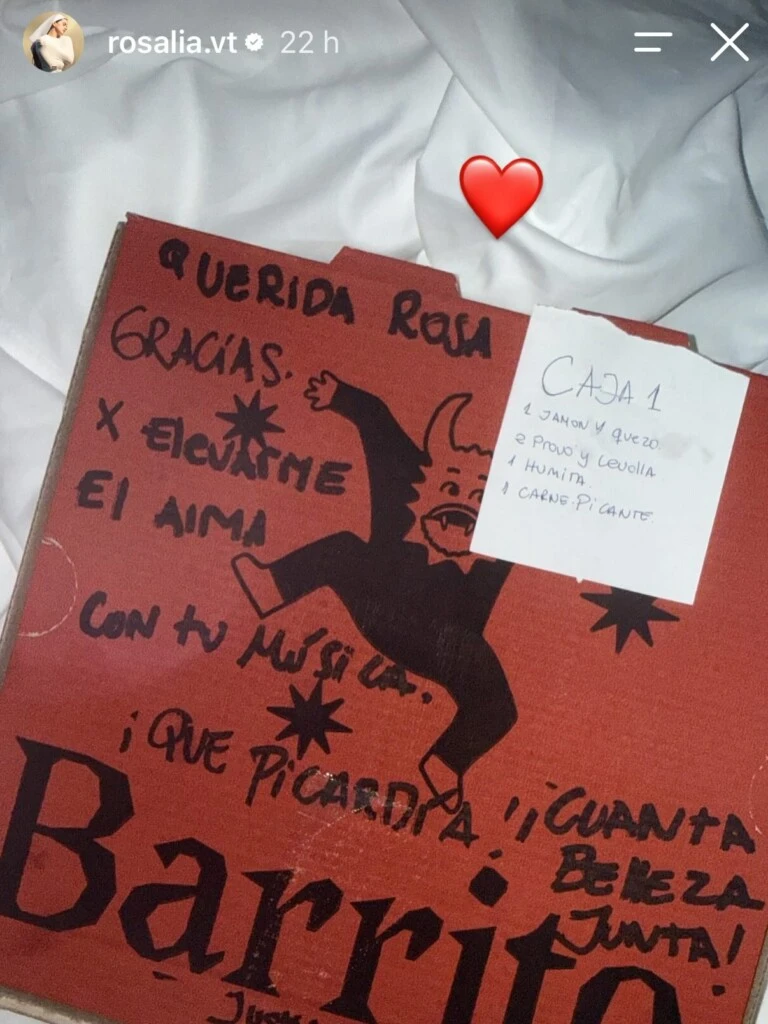 rosalia.vt 22 h
QUERIDA ROSA
GRACIAS.
X ElEVARME
El AlMA
CON tU MÚSiCA.
¡QUE PiCARDÍA!
¡CUANTA
BELLEZA
JUNTA!
CAJA 1
1 JAMON Y QUEZO
2 PROVO Y CEVOLLA
1 HUMITA
1 CARNE PiCANTE.
Barrito